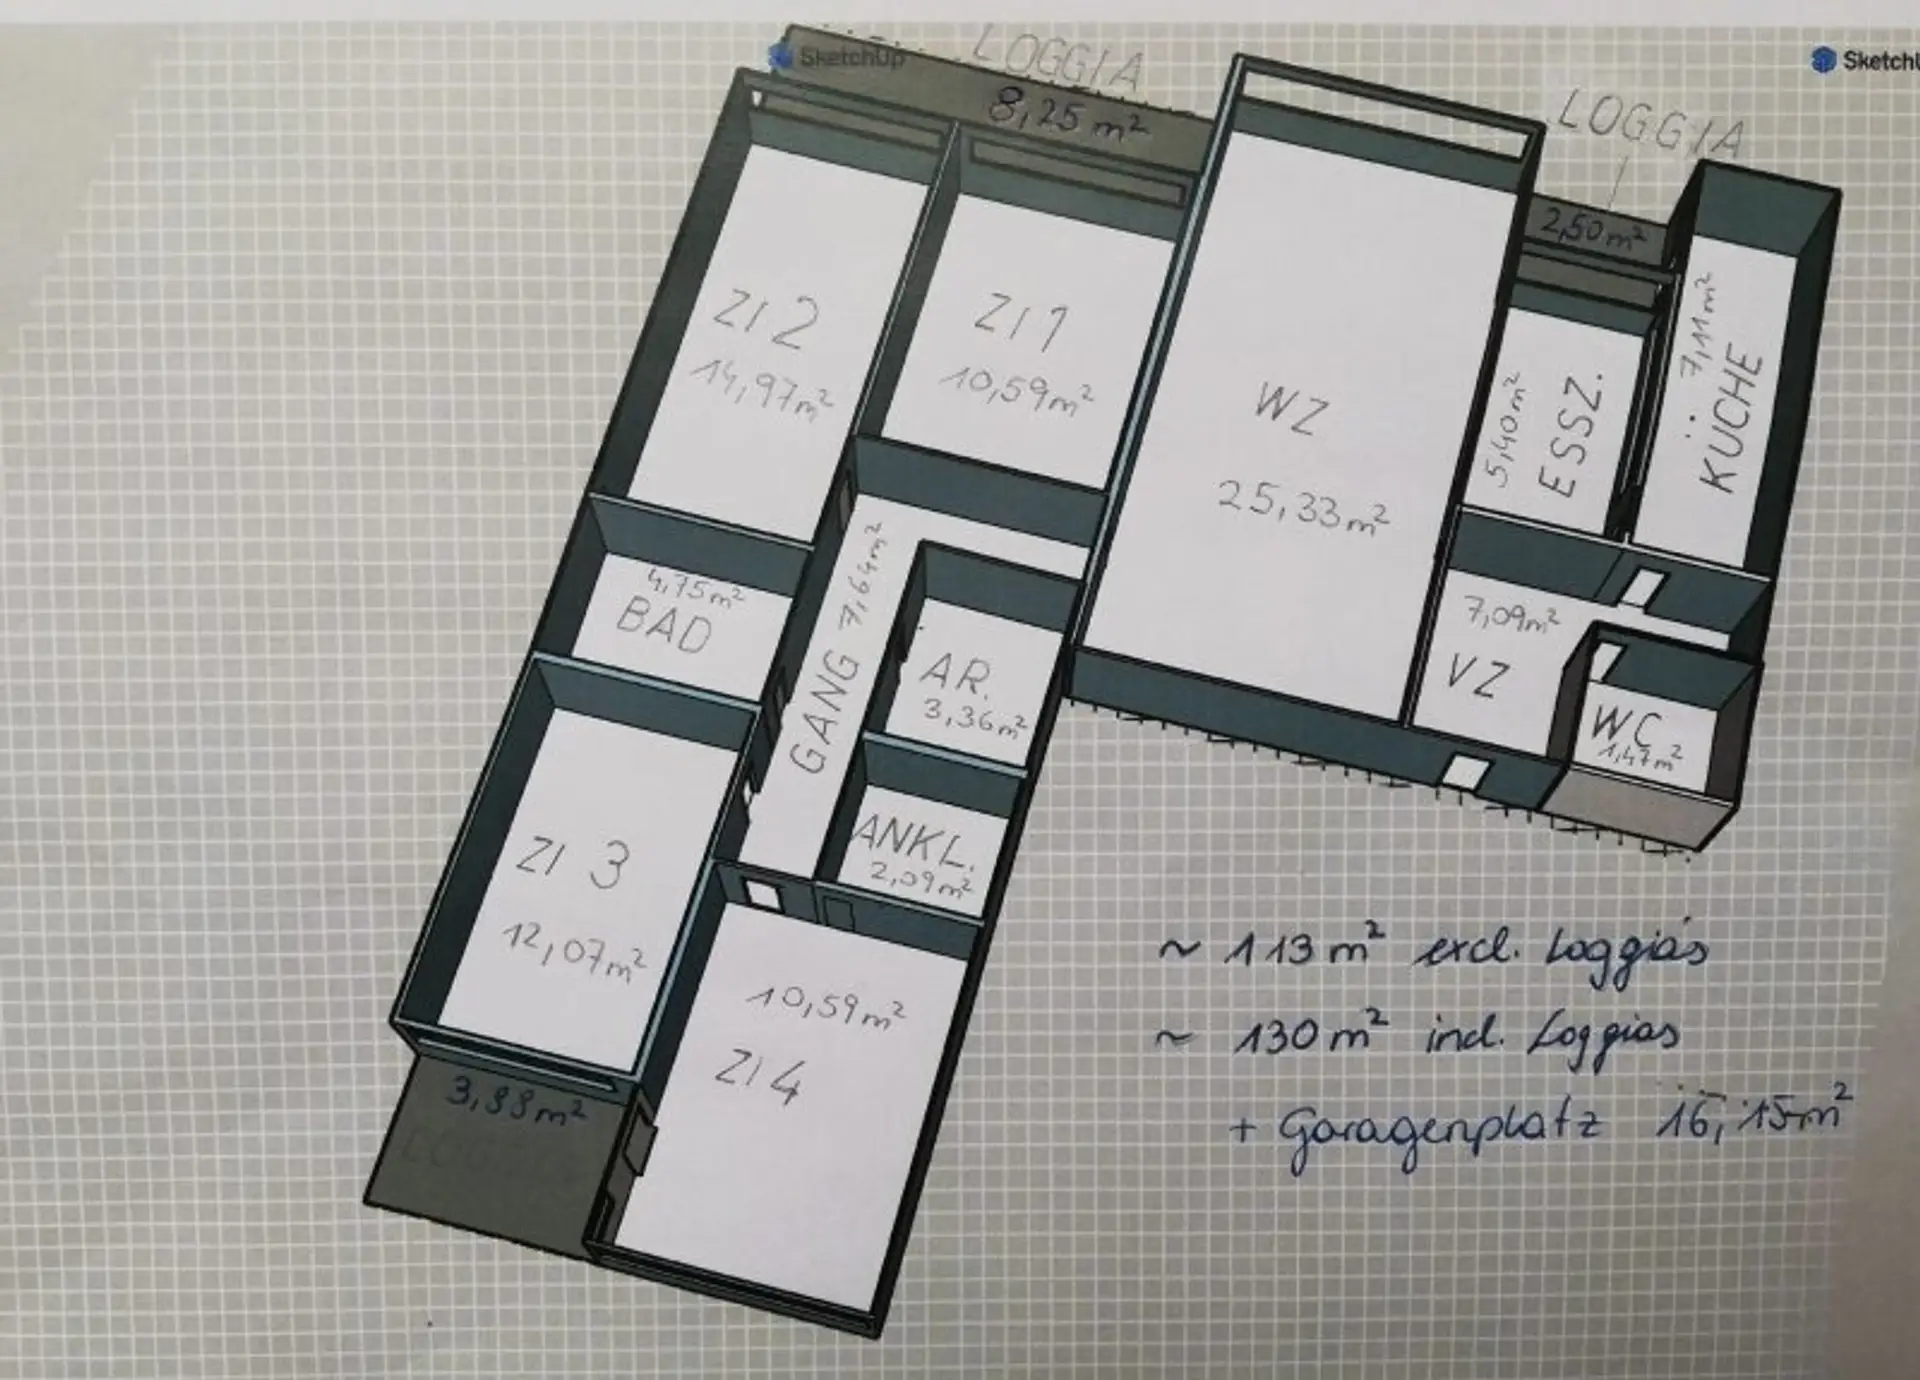 SketchUp
LOGGIA
8,25 m²
SketchU
LOGGIA
2,50 m²
ZI 2
14,97 m²
ZI 1
10,59 m²
WZ
25,33 m²
5,40 m²
ESSZ.
7,11 m²
KÜCHE
4,75 m²
BAD
GANG 7,64 m²
AR.
3,36 m²
7,09 m²
VZ
WC
1,47 m²
ANKL.
2,09 m²
ZI 3
12,07 m²
10,59 m²
ZI 4
LOGGIA
~ 113 m² excl. Loggias
~ 130 m² incl. Loggias
+ Garagenplatz 16,15 m²